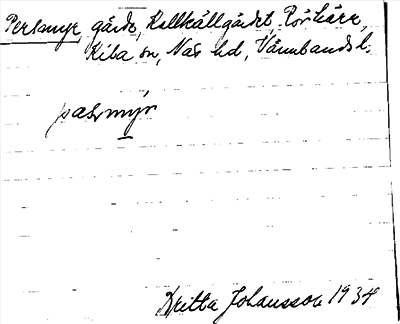 Persmyr, gårdo, Kallkällgärdet, Rörkärr,
Kila sn, Näs hd, Värmlands l.
pæsmýr
Britta Johansson 1934